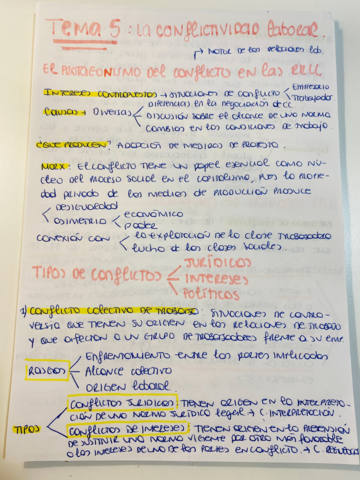 TEMA 5: LA CONFLICTIVIDAD LABORAL.
↳ MOTOR DE LAS RELACIONES LAB.
EL PROTAGONISMO DEL CONFLICTO EN LAS RRLL
INTERESES CONTRAPUESTOS → SITUACIONES DE CONFLICTO < EMPRESARIO
TRABAJADOR
CAUSAS → DIVERSAS < DIFERENCIAS EN LA NEGOCIACIÓN DE CC.
DISCUSIÓN SOBRE EL ALCANCE DE UNA NORMA
CAMBIOS EN LAS CONDICIONES DE TRABAJO
¿QUE PRODUCEN? ADOPCIÓN DE MEDIDAS DE PROTESTA.
MARX: EL CONFLICTO TIENE UN PAPEL ESENCIAL COMO NÚ-
CLEO DEL PROCESO SOCIAL EN EL CAPITALISMO, PUES LA PROPIE-
DAD PRIVADA DE LOS MEDIOS DE PRODUCCIÓN PRODUCE
DESIGUALDAD
ASIMETRÍA < ECONÓMICO
PODER
CONEXIÓN CON < LA EXPLOTACIÓN DE LA CLASE TRABAJADORA
LUCHA DE LAS CLASES SOCIALES.
TIPOS DE CONFLICTOS < JURÍDICOS
INTERESES
POLÍTICOS
1) CONFLICTO COLECTIVO DE TRABAJO: SITUACIONES DE CONTRO-
VERSIA QUE TIENEN SU ORIGEN EN LAS RELACIONES DE TRABAJO
Y QUE AFECTAN A UN GRUPO DE TRABAJADORES FRENTE A SU EMP
RASGOS < ENFRENTAMIENTO ENTRE LAS PARTES IMPLICADAS
ALCANCE COLECTIVO
ORIGEN LABORAL.
CONFLICTOS JURÍDICOS: TIENEN ORIGEN EN LA INTERPRETA-
CIÓN DE UNA NORMA JURÍDICO LEGAL → C. INTERPRETACIÓN.
TIPOS < CONFLICTOS DE INTERESES: TIENEN ORIGEN EN LA PRETENSIÓN
DE SUSTITUIR UNA NORMA VIGENTE POR OTRA MÁS FAVORABLE
A LOS INTERESES DE UNO DE LAS PARTES EN CONFLICTO → C.